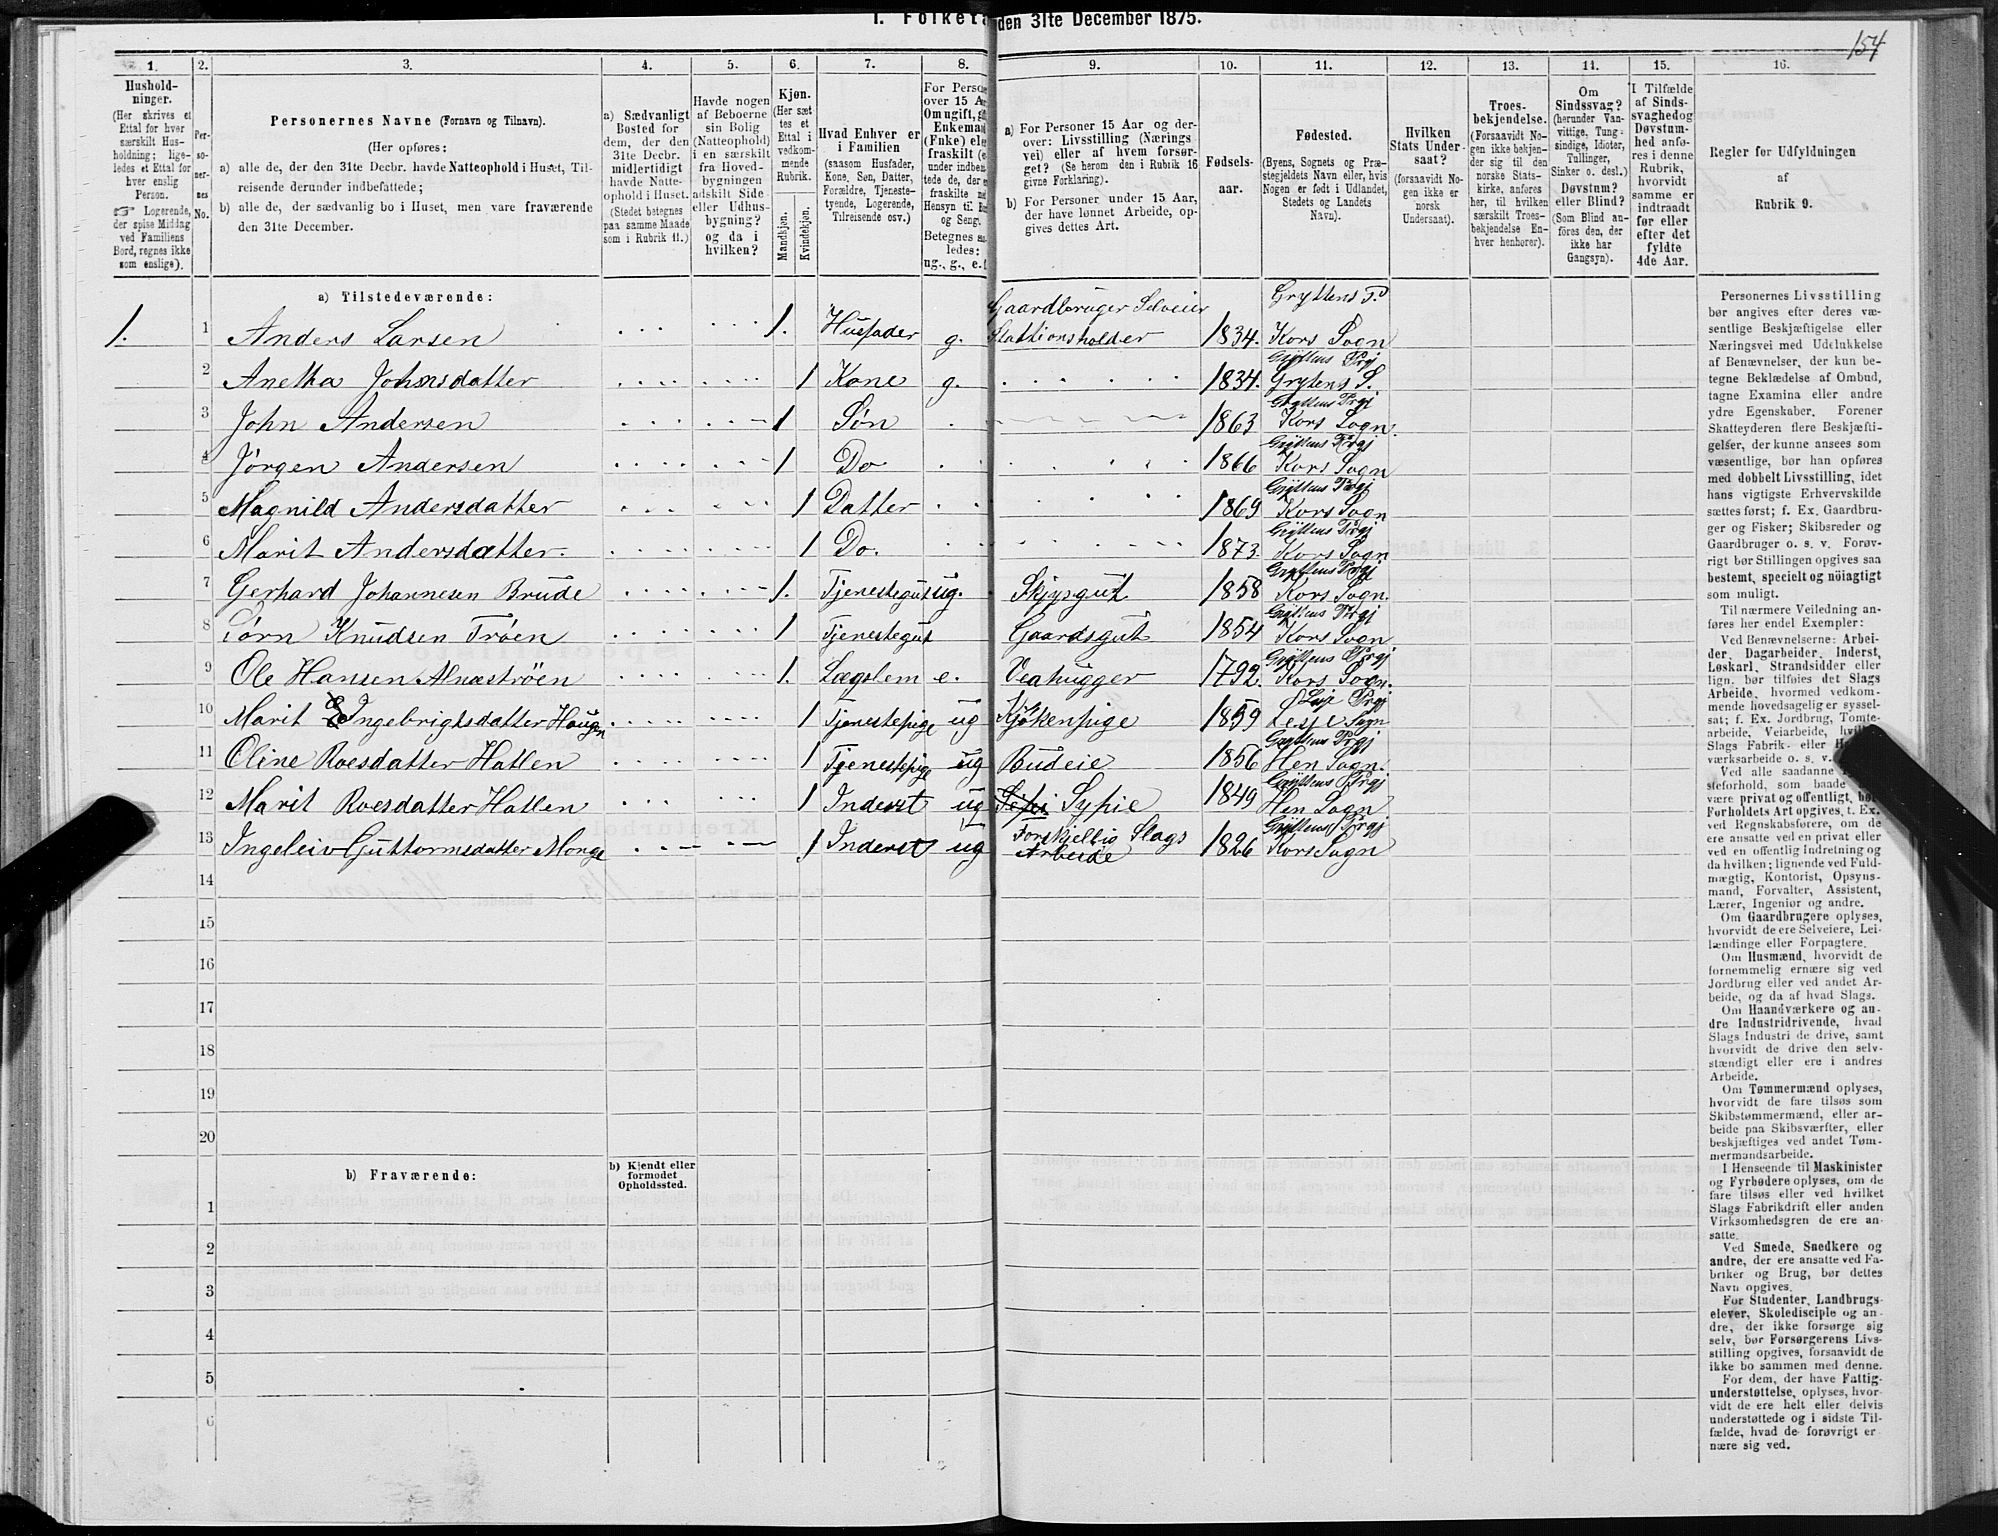 I. Folketæ
den 31te December 1875.
154
1.
2.
3.
4.
5.
6.
7.
8.
9.
10.
11.
12.
13.
14.
15.
16.
Hushold-
ninger.
(Her skrives et
Ettal for hver
særskilt Hus-
holdning; lige-
ledes et Ettal for
hver enslig
Person.
☞ Logerende,
der spise Middag
ved Familiens
Bord, regnes ikke
som enslige).
Per-
so-
ner-
nes
No.
Personernes Navne (Fornavn og Tilnavn).
(Her opføres:
a) alle de, der den 31te Decbr. havde Natteophold i Huset, Til-
reisende derunder indbefattede;
b) alle de, der sædvanlig bo i Huset, men vare fraværende
den 31te December.
a) Sædvanligt
Bosted for
dem, der den
31te Decbr.
midlertidigt
havde Natte-
ophold i Huset.
(Stedet betegnes
paa samme Maade
som i Rubrik 11.)
Havde nogen
af Beboerne
sin Bolig
(Natteophold)
i en særskilt
fra Hoved-
bygningen
adskilt Side-
eller Udhus-
bygning?
og da i
hvilken?
Kjøn.
(Her sæt-
tes et
Ettal i
vedkom-
mende
Rubrik.
Mandkjøn.
Kvindekjøn.
Hvad Enhver er
i Familien
(saasom Husfader,
Kone, Søn, Datter,
Forældre, Tjeneste-
tyende, Logerende,
Tilreisende osv.)
For Perso
over 15 Aa
Om ugift, g
Enkema
(Fnke) ele
fraskilt
under indbe
tede de, der
fraskilte m
Hensyn til B
og Seng.
Betegnes s
ledes:
ug., g., e.
a) For Personer 15 Aar og der-
over: Livsstilling (Nærings
vei) eller af hvem forsør-
get? (Se herom den i Rubrik 16
givne Forklaring).
b) For Personer under 15 Aar,
der have lønnet Arbeide, op-
gives dettes Art.
Fødsels-
aar.
Fødested.
(Byens, Sognets og Præ-
stegjeldets Navn eller, hvis
Nogen er født i Udlandet,
Stedets og Landets
Navn).
Hvilken
Stats Under-
saat?
(forsaavidt No-
gen ikke er
norsk
Undersaat).
Troes-
bekjendelse.
(Forsaavidt No-
gen ikke bekjen-
der sig til den
norske Stats-
kirke, anføres
her, til hvilken
særskilt Troes-
bekjendelse En-
hver henhører).
Om
Sindssvag?
(herunder Van-
vittige, Tung-
sindige, Idioter,
Tullinger,
Sinker o. desl.)
Døvstum?
eller Blind?
(Som Blind an-
føres den, der
ikke har
Gangsyn).
I Tilfælde
af Sinds-
svaghed og
Døvstum-
hed anfø-
res i denne
Rubrik,
hvorvidt
samme er
indtraadt
før eller
efter det
fyldte
4de Aar.
Regler for Udfyldningen
af
Rubrik 9.
a) Tilstedeværende:
Gaardbruger Selveier
Gryttens P.
1. 1 Anders Larsen 1. Husfader g. Stationsholder 1834. Kors Sogn
Gryttens Prgj
2 Anetha Johnsdatter 1 Kone g. 1834. Gryttens S.
Gryttens Prgj
3 John Andersen 1 Søn 1863 Kors Sogn.
Gryttens Prgj
4 Jørgen Andersen 1 Do 1866 Kors Sogn
Gryttens Prgj
5 Magnild Andersdatter 1 Datter 1869 Kors Sogn
Gryttens Prgj
6 Marit Andersdatter. 1 Do. 1873. Kors Sogn
Gryttens Prgj
7 Gerhard Johannesen Brude 1. Tjenestegut ug. Skysgut 1858 Kors Sogn.
Gryttens Prgj
8 Jørn Knudsen Trøen 1 Tjenestegut Gaardsgut 1854 Kors Sogn
Gryttens Prgj
9 Ole Hansen Alnæstrøen 1. Lægslem e. Vedhugger 1792. Kors Sogn.
Lesje Prgj
10 Marit Ingebrigtsdatter Haugen 1 Tjenestepige ug Kjøkenpige 1859 Lesje Sogn
Gryttens Prgj
11 Oline Roesdatter Hatlen 1 Tjenestepige ug Budeie 1856 Hen Sogn.
Gryttens Prgj
12 Marit Roesdatter Hatlen 1 Inderst ug Sypie 1849 Hen Sogn
Forskjellig Slags
Gryttens Prgj
13 Ingeleiv Guttormsdatter Monge 1 Inderst ug Arbeide 1826 Kors Sogn
14
15
16
17
18
19
20
b) Fraværende:
b) Kjendt eller
formodet
Opholdssted.
1
2
3
4
5
6
Personernes Livsstilling
bør angives efter deres væ-
sentlige Beskjæftigelse eller
Næringsvei med Udelukkelse
af Benævnelser, der kun be-
tegne Beklædelse af Ombud,
tagne Examina eller andre
ydre Egenskaber. Forener
Skatteyderen flere Beskjæfti-
gelser, der kunne ansees som
væsentlige, bør han opføres
med dobbelt Livsstilling, idet
hans vigtigste Erhvervskilde
sættes først; f. Ex. Gaardbru-
ger og Fisker; Skibsreder og
Gaardbruger o. s. v. Forøv-
rigt bør Stillingen opgives saa
bestemt, specielt og nöiagtigt
som muligt.
Til nærmere Veiledning an-
føres her endel Exempler:
Ved Benævnelserne: Arbei-
der, Dagarbeider, Inderst,
Løskarl, Strandsidder eller
lign. bør tilføies det Slags
Arbeide, hvormed vedkom-
mende hovedsagelig er syssel-
sat; f. Ex. Jordbrug, Tomte-
arbeide, Veiarbeide, hvil
Slags Fabrik- eller
værksarbeide o. s. v.
Ved alle saadanne
steforhold, som baade
være privat og offentligt, bør
Forholdets Art opgives, f. Ex.
ved Regnskabsførere, om de
ere ansatte ved en privat eller
ved en offentlig Indretning og
da hvilken; lignende ved Fuld-
mægtig, Kontorist, Opsyns-
mand, Forvalter, Assistent,
Lærer, Ingeniør og andre.
Om Gaardbrugere oplyses,
hvorvidt de ere Selveiere, Lei-
lændinge eller Forpagtere.
Om Husmænd, hvorvidt de
fornemmelig ernære sig ved
Jordbrug eller ved andet Ar-
beide, og da af hvad Slags.
Om Haandværkere og an-
dre Industridrivende, hvad
Slags Industri de drive, samt
hvorvidt de drive den selv-
stændigt eller ere i andres
Arbeide.
Om Tømmermænd oplyses,
hvorvidt de fare tilsøs som
Skibstømmermænd, eller ar-
beide paa Skibsværfter, eller
beskjæftiges ved andet Tøm-
mermandsarbeide.
I Henseende til Maskinister
og Fyrbødere oplyses, om de
fare tilsøs eller ved hvilket
Slags Fabrikdrift eller anden
Virksomhedsgren de ere an-
satte.
Ved Smede, Snedkere og
andre, der ere ansatte ved Fa-
briker og Brug, bør dettes
Navn opgives.
For Studenter, Landbrugs-
elever, Skoledisciple og an-
dre, der ikke forsørge sig
selv, bør Forsørgerens Livs-
stilling opgives, forsaavidt de
ikke bo sammen med denne.
For dem, der have Fattig-
understøttelse, oplyses, hvor-
vidt de ere helt eller delvis
understøttede og i sidste Til-
fælde, hvad de forøvrigt er-
nære sig ved.